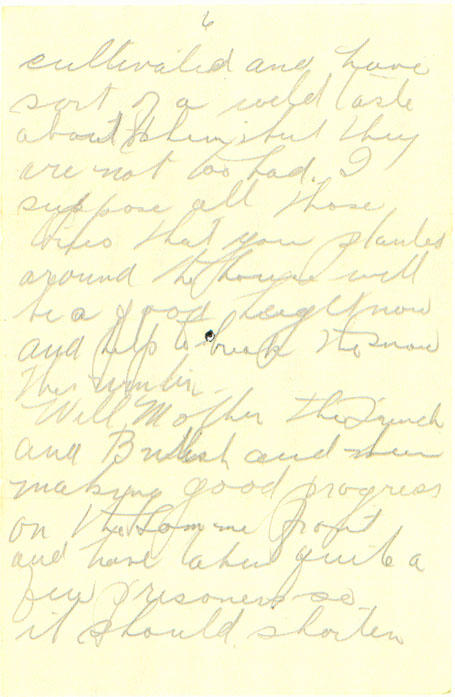 6
cultivated and have
sort of a wild taste
about them, but they
are not too bad. I
suppose all those
vines that you planted
around the house will
be a good height now
and help to break the snow
this winter.
Well Mother the French
and British are
making good progress
on the Somme front
and have taken quite a
few prisoners so
it should shorten